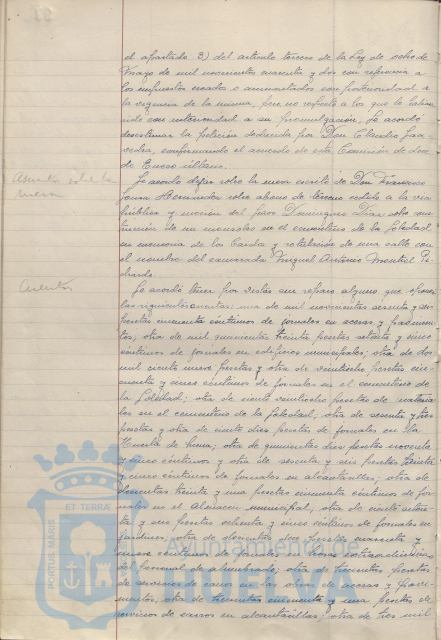 el apartado 3) del articulo tercero de la Ley de ocho de
Mayo de mil novecientos cuarenta y dos con referencia a
los impuestos creados o aumentados con posterioridad a
la vigencia de la misma, pero no respecto a los que lo
sido con anterioridad a su promulgación, se acordó
desestimar la petición deducida por Don Claudio Saa-
vedra, confirmando el acuerdo de esta Comisión de doce
de Enero último.
Asuntos sobre la
mesa
Se acordó dejar sobre la mesa escrito de Don Francisco
sobre abono de terreno cedido a la vía
pública y moción del señor Dominguez Diaz sobre cons-
trucción de un mausoleo en el cementerio de la Soledad
en memoria de los Caidos y rotulación de una calle con
el nombre del camarada Miguel Antonio Montiel Pe-
drada.
Cuentas
Se acordó tener por vistas sin reparo alguno que oponer
las siguientes cuentas: una de mil novecientas sesenta y seis
pesetas cincuenta céntimos de jornales en aceras y pavimen-
tos; otra de mil quinientas treinta pesetas setenta y cinco
céntimos de jornales en edificios municipales; otra de dos
mil ciento nueve pesetas y otra de veintiocho pesetas cin-
cuenta y cinco céntimos de jornales en el cementerio de
la Soledad; otra de ciento veintiocho pesetas de materia-
les en el cementerio de la Soledad; otra de sesenta y tres
pesetas y otra de ciento diez pesetas de jornales en la
Huerta de Mena; otra de quinientas diez pesetas noventa
y cinco céntimos y otra de sesenta y seis pesetas treinta
y cinco céntimos de jornales en alcantarillas; otra de
doscientas treinta y una pesetas cincuenta céntimos de jor-
nales en el Almacen municipal; otra de ciento
y seis pesetas ochenta y cinco céntimos de jornales en
jardines; otra de doscientas diez pesetas cuarenta y
nueve céntimos de jornales y horas extraordinarias
del personal de alumbrado; otra de trescientas pesetas
de servicios de carros en las obras de aceras y pavi-
mentos; otra de trescientas cincuenta y una pesetas de
servicios de carros en alcantarillas; otra de tres mil
PORTUS MARIS
ET TERRÆ
Ayuntamiento de